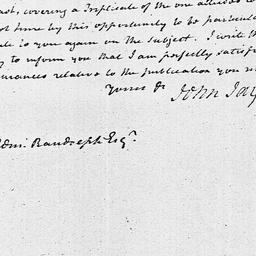 ast, covering a Triplicate of the one alluded to
not time by this opportunity to be particular
to you again on the subject. I write th
to inform you that I am perfectly satisfi
urances relative to the publication you m
Yours &c
John Jay
Edm: Randolph Esqr.